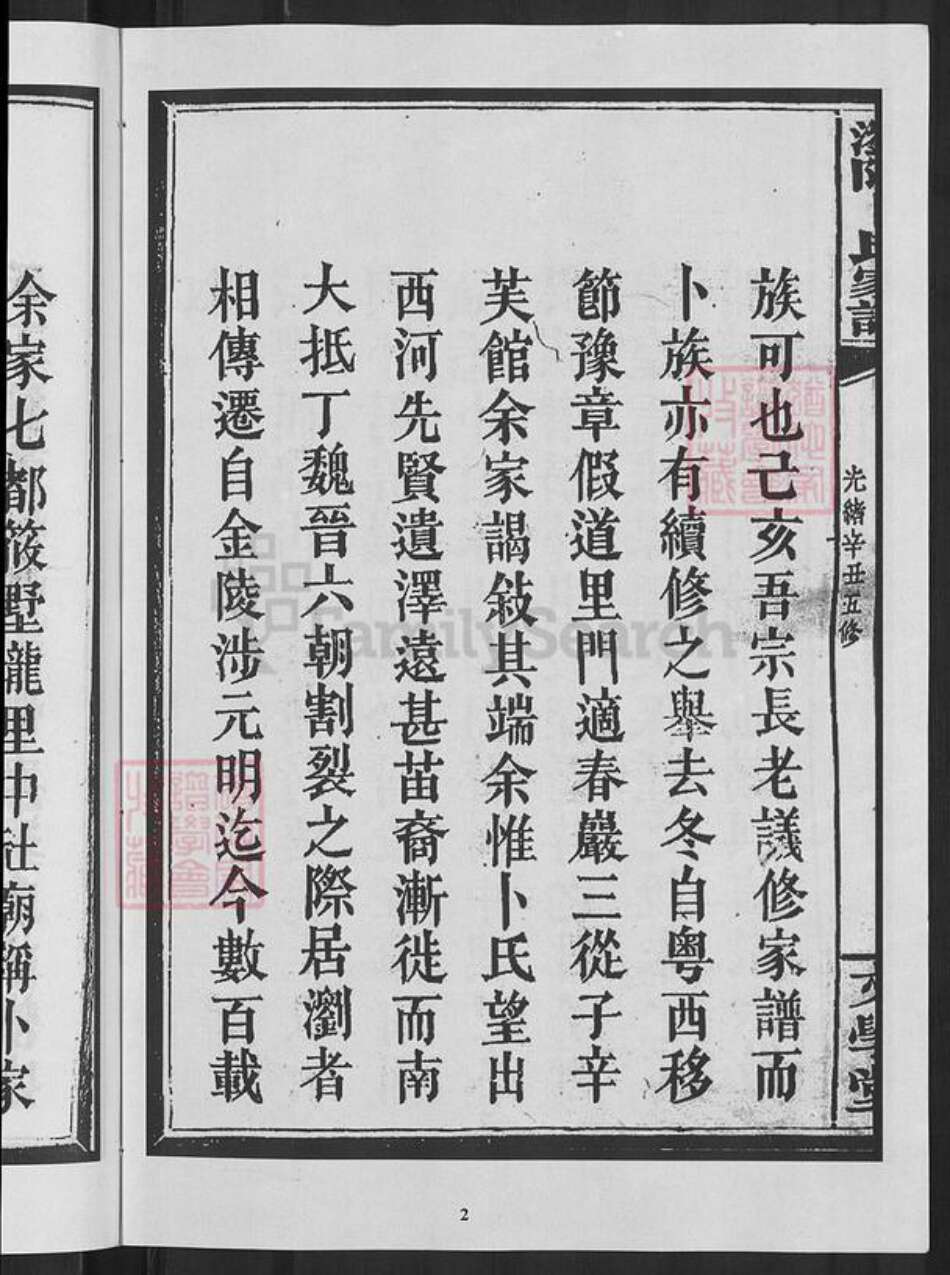 光緒辛丑五修
族可也己亥吾宗長老議修家譜而
卜族亦有續修之舉去冬自粵西移
節豫章假道里門適春巖三從子辛
芙館余家謁敍其端余惟卜氏望出
西河先賢遺澤遠甚苗裔漸徙而南
大抵丁魏晉六朝割裂之際居瀏者
相傳遷自金陵涉元明迄今數百載
余家七都筱墅瀧里中社廟稱卜家
FamilySearch
2